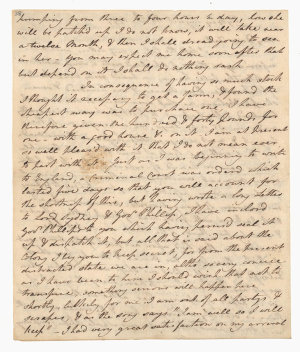 pumping from three to four hours a day, how she
will be patch'd up I do not know, it will take near
a twelve Month, & then I shall dread going to sea
in her – you may expect me home soon after that
but depend on it I shall do nothing rash
In consequence of having so much stock
I thought it necessary to get a farm, & found the
cheapest way was to purchase one, I have
therefore given one hundred & forty pounds for
one – with a good house &c. on it. I am at present
so well pleased with it that I do not mean ever
to part with it – Just as I was beginning to write
to England, a criminal Court was ordered which
lasted five days so that you will account for
the shortness of this, but having wrote a long letter
to Lord Sydney & Govr. Phillip, I have inclosed
Govr. Phillip's to you which having perused seal it
up & dispatch it, but all that is said about the
Colony I beg you to keep secret, for from the present
distracted state we are in, & the many concerns
as I have been to him I should wish that not to
transpire. something serious will happen here
shortly, luckily for me I am out of all partys &
scrapes, & as the song says, "I am well so I will
keep" – I had very great satisfaction on my arrival